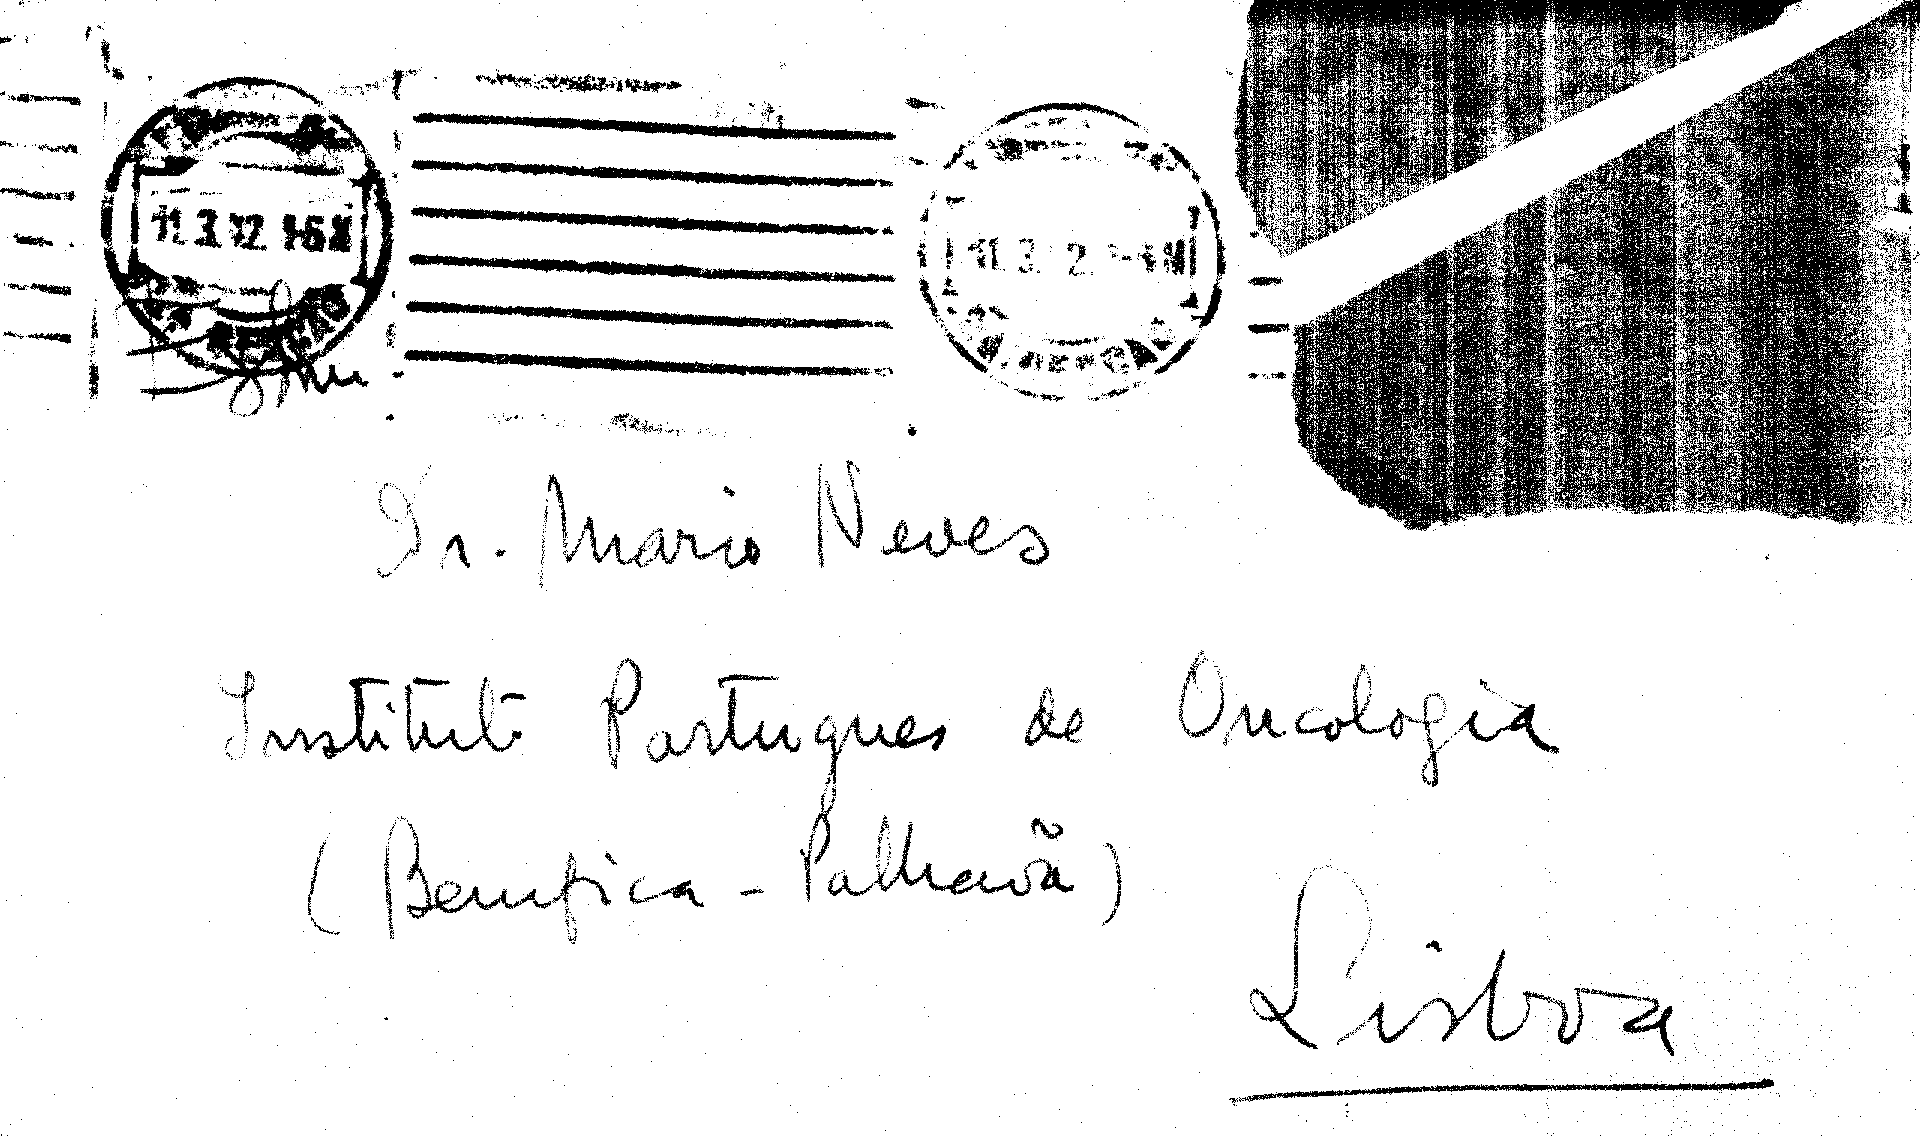 11 3 12
Dr. Mario Neves
Instituto Portugues de Oncologia
(Bemfica - Palhavã)
Lisboa